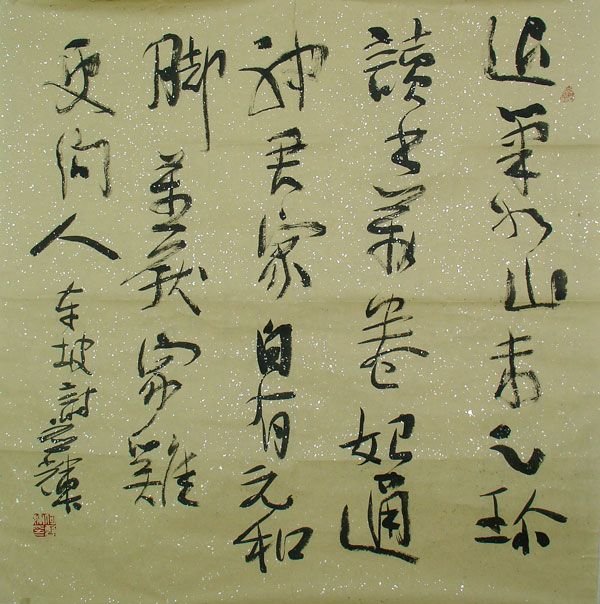 退筆如山未足珍
讀書萬卷始通
神君家自有元和
脚莫厭家雞
更問人
东坡詩